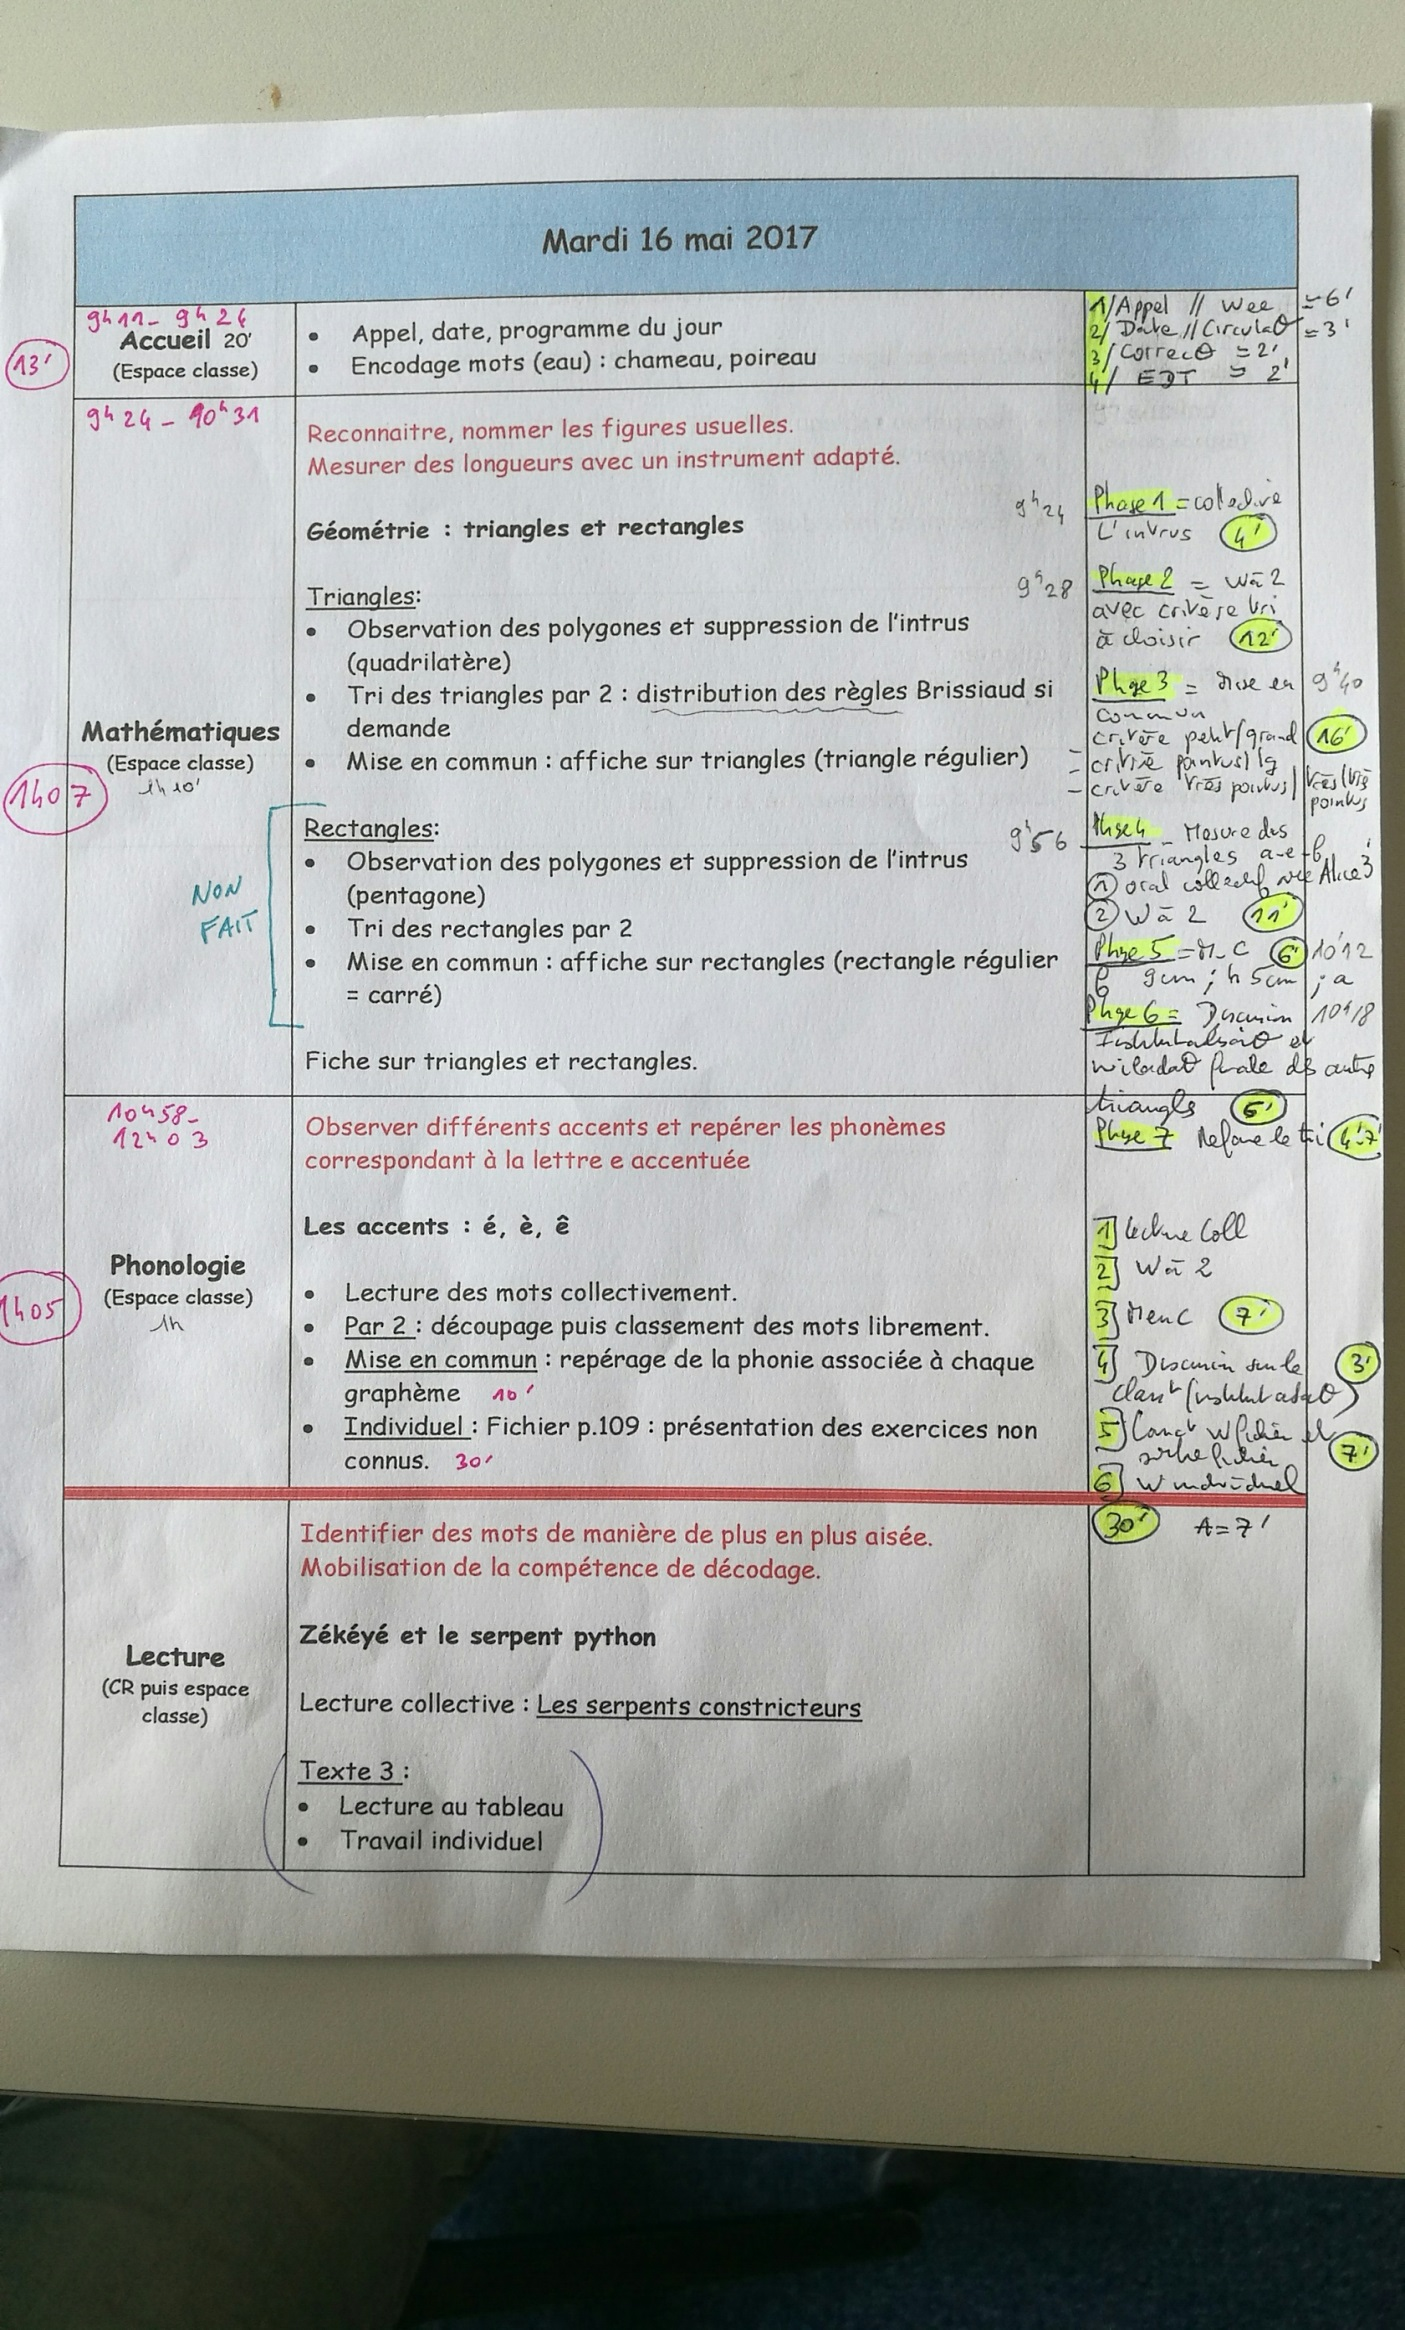 Mardi 16 mai 2017
9h11 - 9h24
Accueil 20'
(Espace classe)
13'
• Appel, date, programme du jour
• Encodage mots (eau) : chameau, poireau
1/ Appel // Wee ≃ 6'
2/ Date // Circulat° = 3'
3/ Correct° = 2'
4/ EDT = 2'
9h24 - 10h31
Mathématiques
(Espace classe)
1h10'
1h07
Reconnaitre, nommer les figures usuelles.
Mesurer des longueurs avec un instrument adapté.
Géométrie : triangles et rectangles
Triangles:
• Observation des polygones et suppression de l'intrus
(quadrilatère)
• Tri des triangles par 2 : distribution des règles Brissiaud si
demande
• Mise en commun : affiche sur triangles (triangle régulier)
NON
FAIT
Rectangles:
• Observation des polygones et suppression de l'intrus
(pentagone)
• Tri des rectangles par 2
• Mise en commun : affiche sur rectangles (rectangle régulier
= carré)
Fiche sur triangles et rectangles.
9h24 Phase 1 = collective
L'intrus 4'
9h28 Phase 2 = W à 2
avec critère tri
à choisir 12'
Phase 3 = Mise en 9h40
commun
critère petit/grand 16'
- critère pointus/
- critère très pointus/ très/très
pointus
9h56 Phase 4 - Mesure des
3 triangles a-e-b
① oral collectif
② W à 2 11'
Phase 5 = M.C 6' 10h12
b 9cm ; h 5cm ; a
Phase 6 = Discussion 10h18
Institutionalisat° et
finale ds autre
triangls 5'
Phase 7 Refaire le tri 4'-7'
10h58-
12h03
Phonologie
(Espace classe)
1h
1h05
Observer différents accents et repérer les phonèmes
correspondant à la lettre e accentuée
Les accents : é, è, ê
• Lecture des mots collectivement.
• Par 2 : découpage puis classement des mots librement.
• Mise en commun : repérage de la phonie associée à chaque
graphème 10'
• Individuel : Fichier p.109 : présentation des exercices non
connus. 30'
1] Lecture Coll
2] W à 2
3] M en C 7'
4] Discussion sur le 3'
5] W fichier et
7'
6] W individuel
30' A=7'
Lecture
(CR puis espace
classe)
Identifier des mots de manière de plus en plus aisée.
Mobilisation de la compétence de décodage.
Zékéyé et le serpent python
Lecture collective : Les serpents constricteurs
Texte 3 :
• Lecture au tableau
• Travail individuel